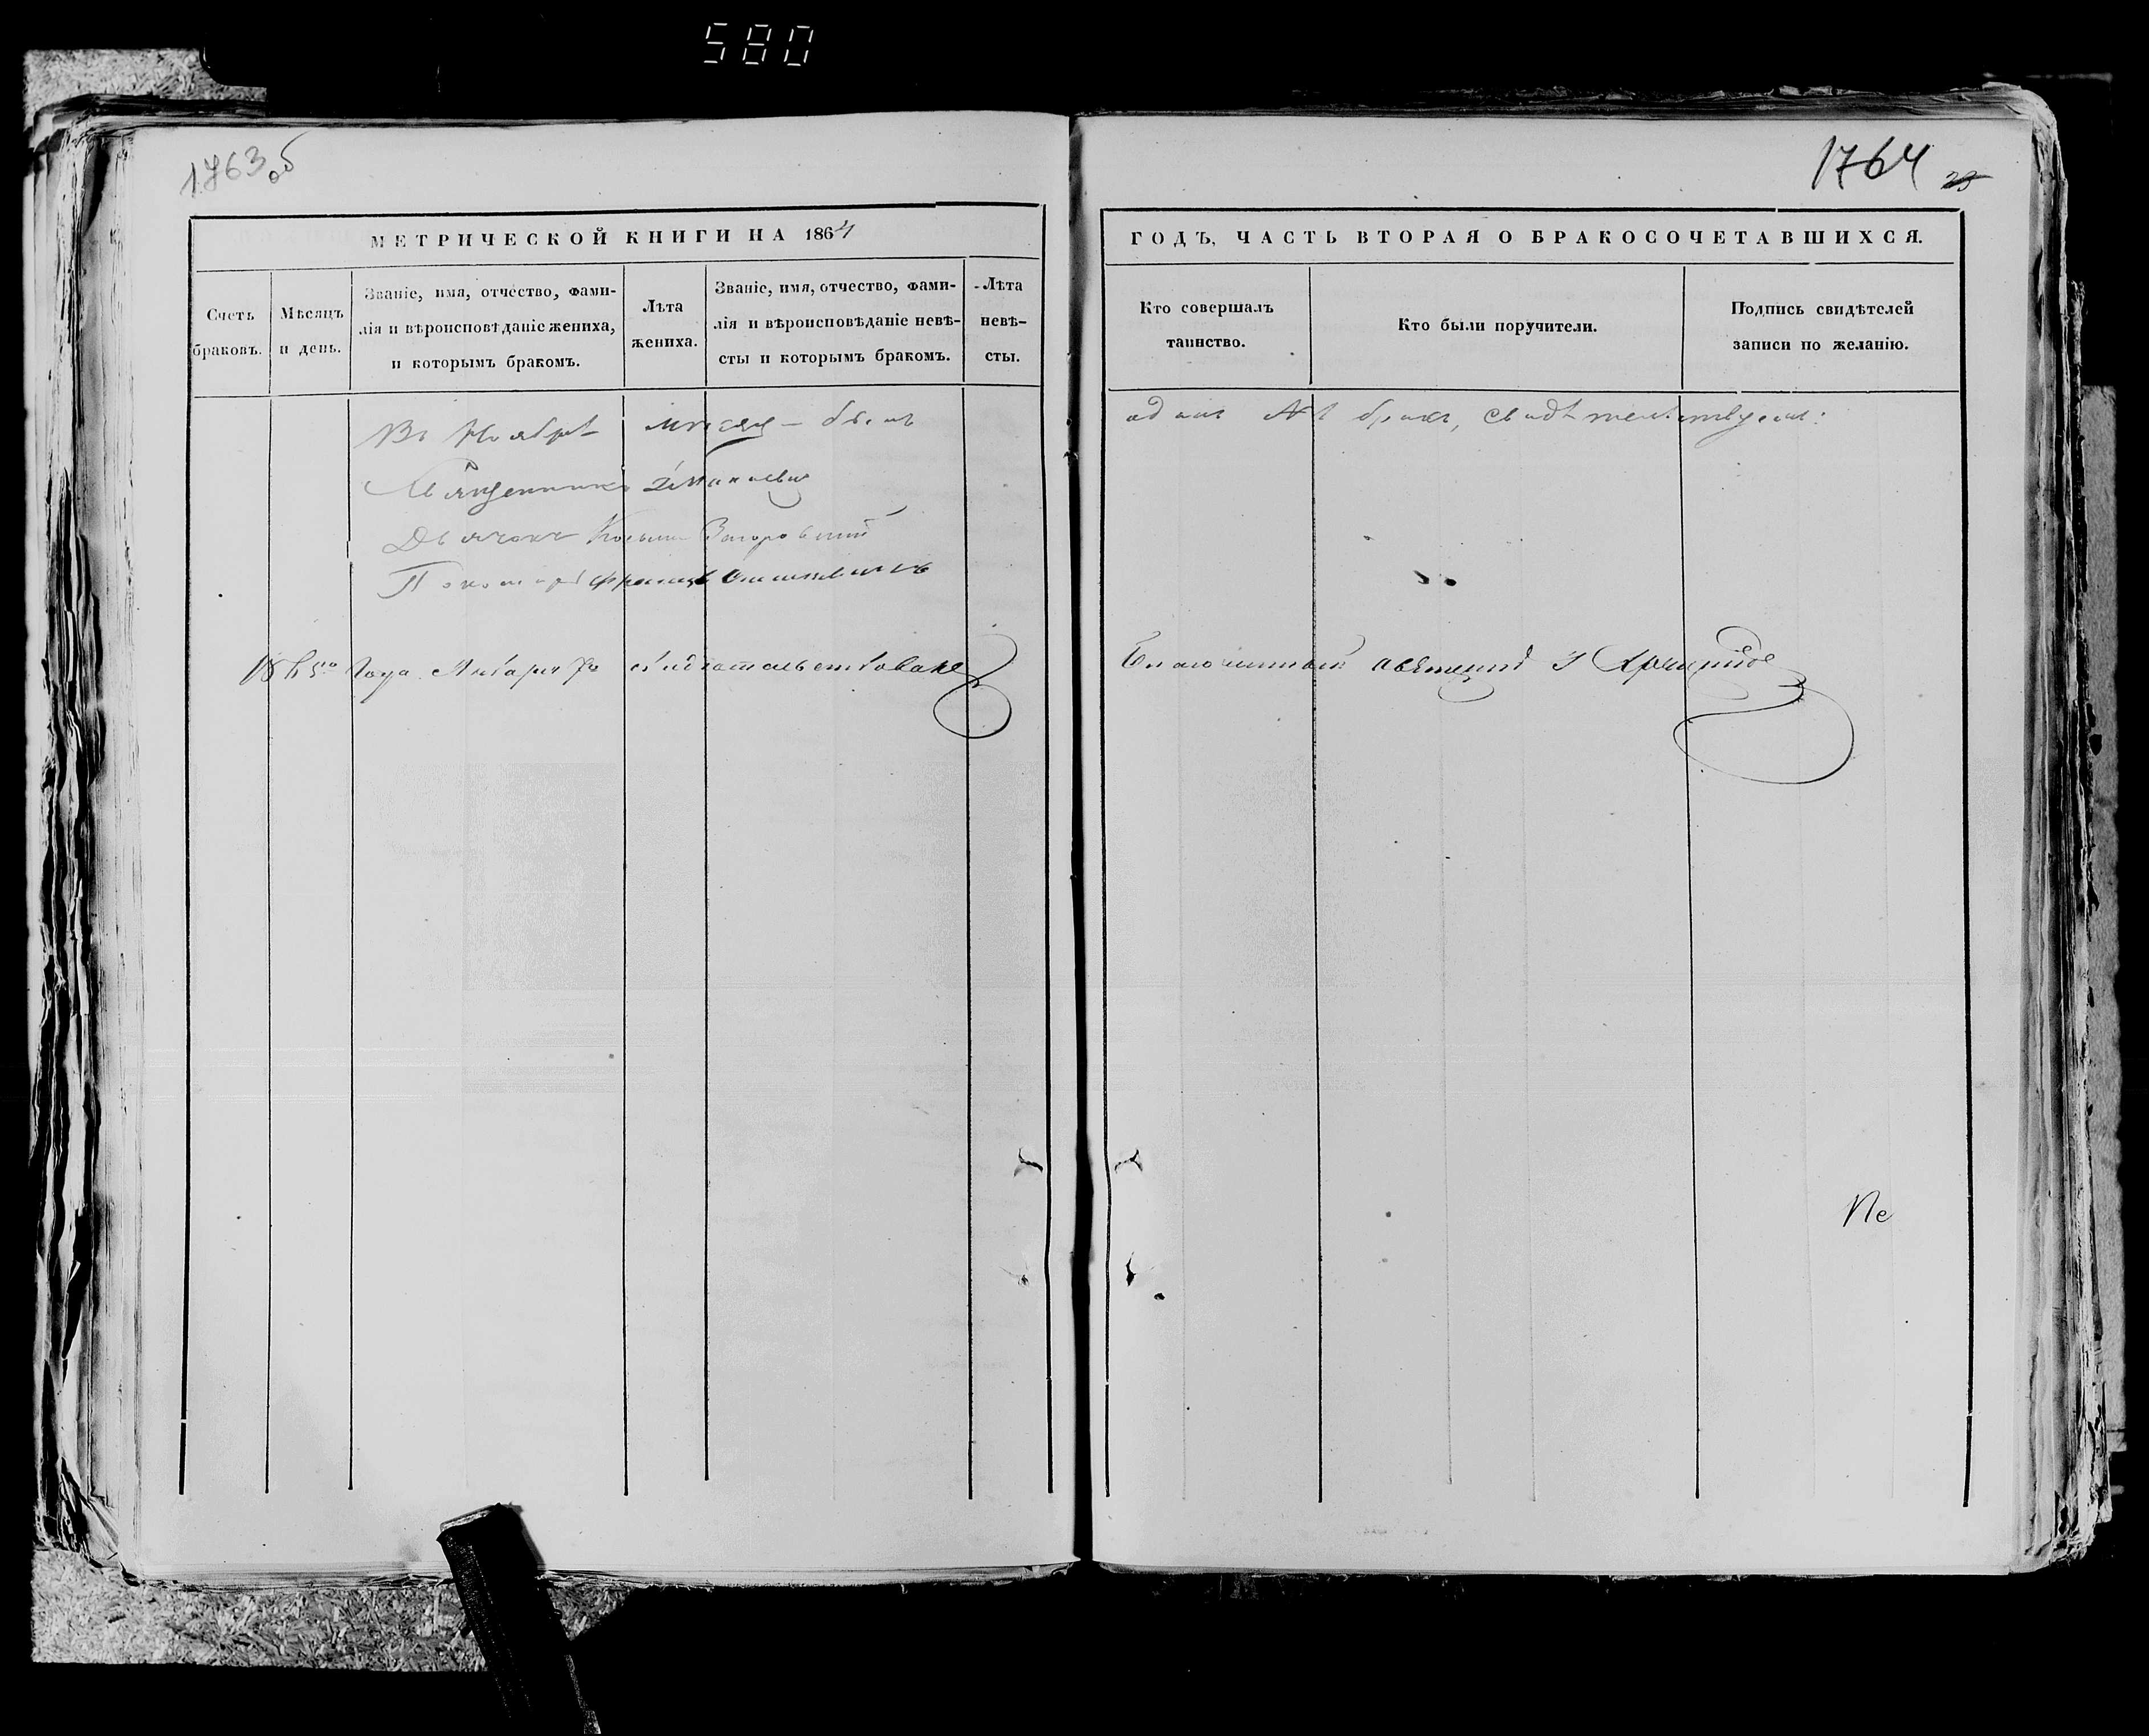 580
1763 об
1764 23
МЕТРИЧЕСКОЙ КНИГИ НА 1864
ГОДЪ, ЧАСТЬ ВТОРАЯ О БРАКОСОЧЕТАВШИХСЯ.
Счетъ
браковъ.
Мѣсяцъ
и день.
Званіе, имя, отчество, фами-
лія и вѣроисповѣданіе жениха,
и которымъ бракомъ.
Лѣта
жениха.
Званіе, имя, отчество, фами-
лія и вѣроисповѣданіе невѣ-
сты и которымъ бракомъ.
Лѣта
невѣ-
сты.
Кто совершалъ
таинство.
Кто были поручители.
Подпись свидѣтелей
записи по желанію.
Въ Ноябрѣ мѣсяцѣ былъ
одинъ №1 бракъ, свидѣтельствуемъ:
Священникъ
Дьячокъ Козьма Загоровскій
Пономарь Францъ
1865го Года Января 7го свидѣтельствовалъ
Благочинный І
Ne